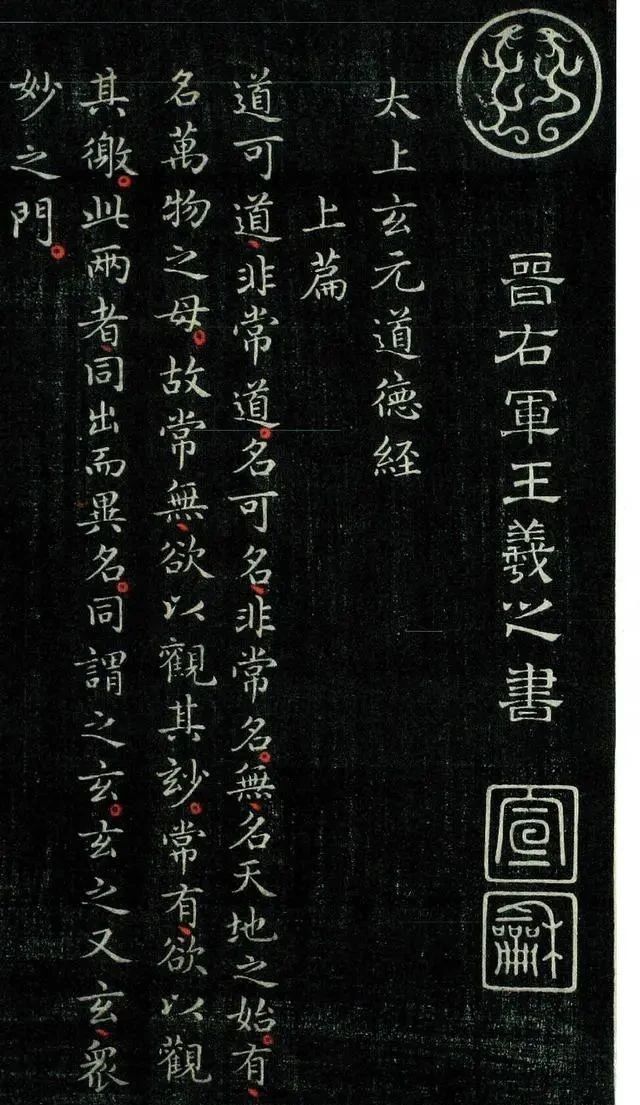 晉右軍王羲之書
宣
龢
太上玄元道德経
上篇
道可道、非常道。名可名、非常名。無、名天地之始。有、
名萬物之母。故常無、欲以觀其玅。常有、欲以觀
其徼。此兩者、同出而異名。同謂之玄。玄之又玄、衆
妙之門。